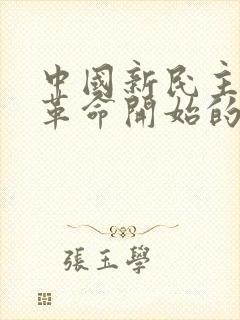 中國新民主
革命開始的
張玉學